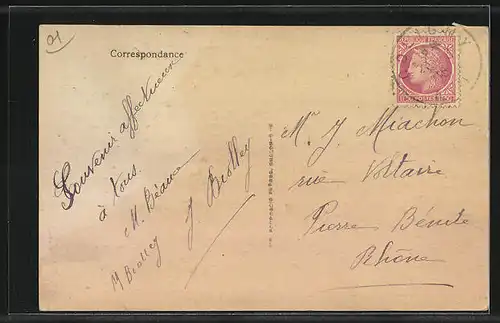 01
Correspondance
Souvenir affectueux
à tous.
M. Béanc
J. Brolley
M Brolley
Mr J. Miachon
rue Voltaire
Pierre Bénite
Rhône